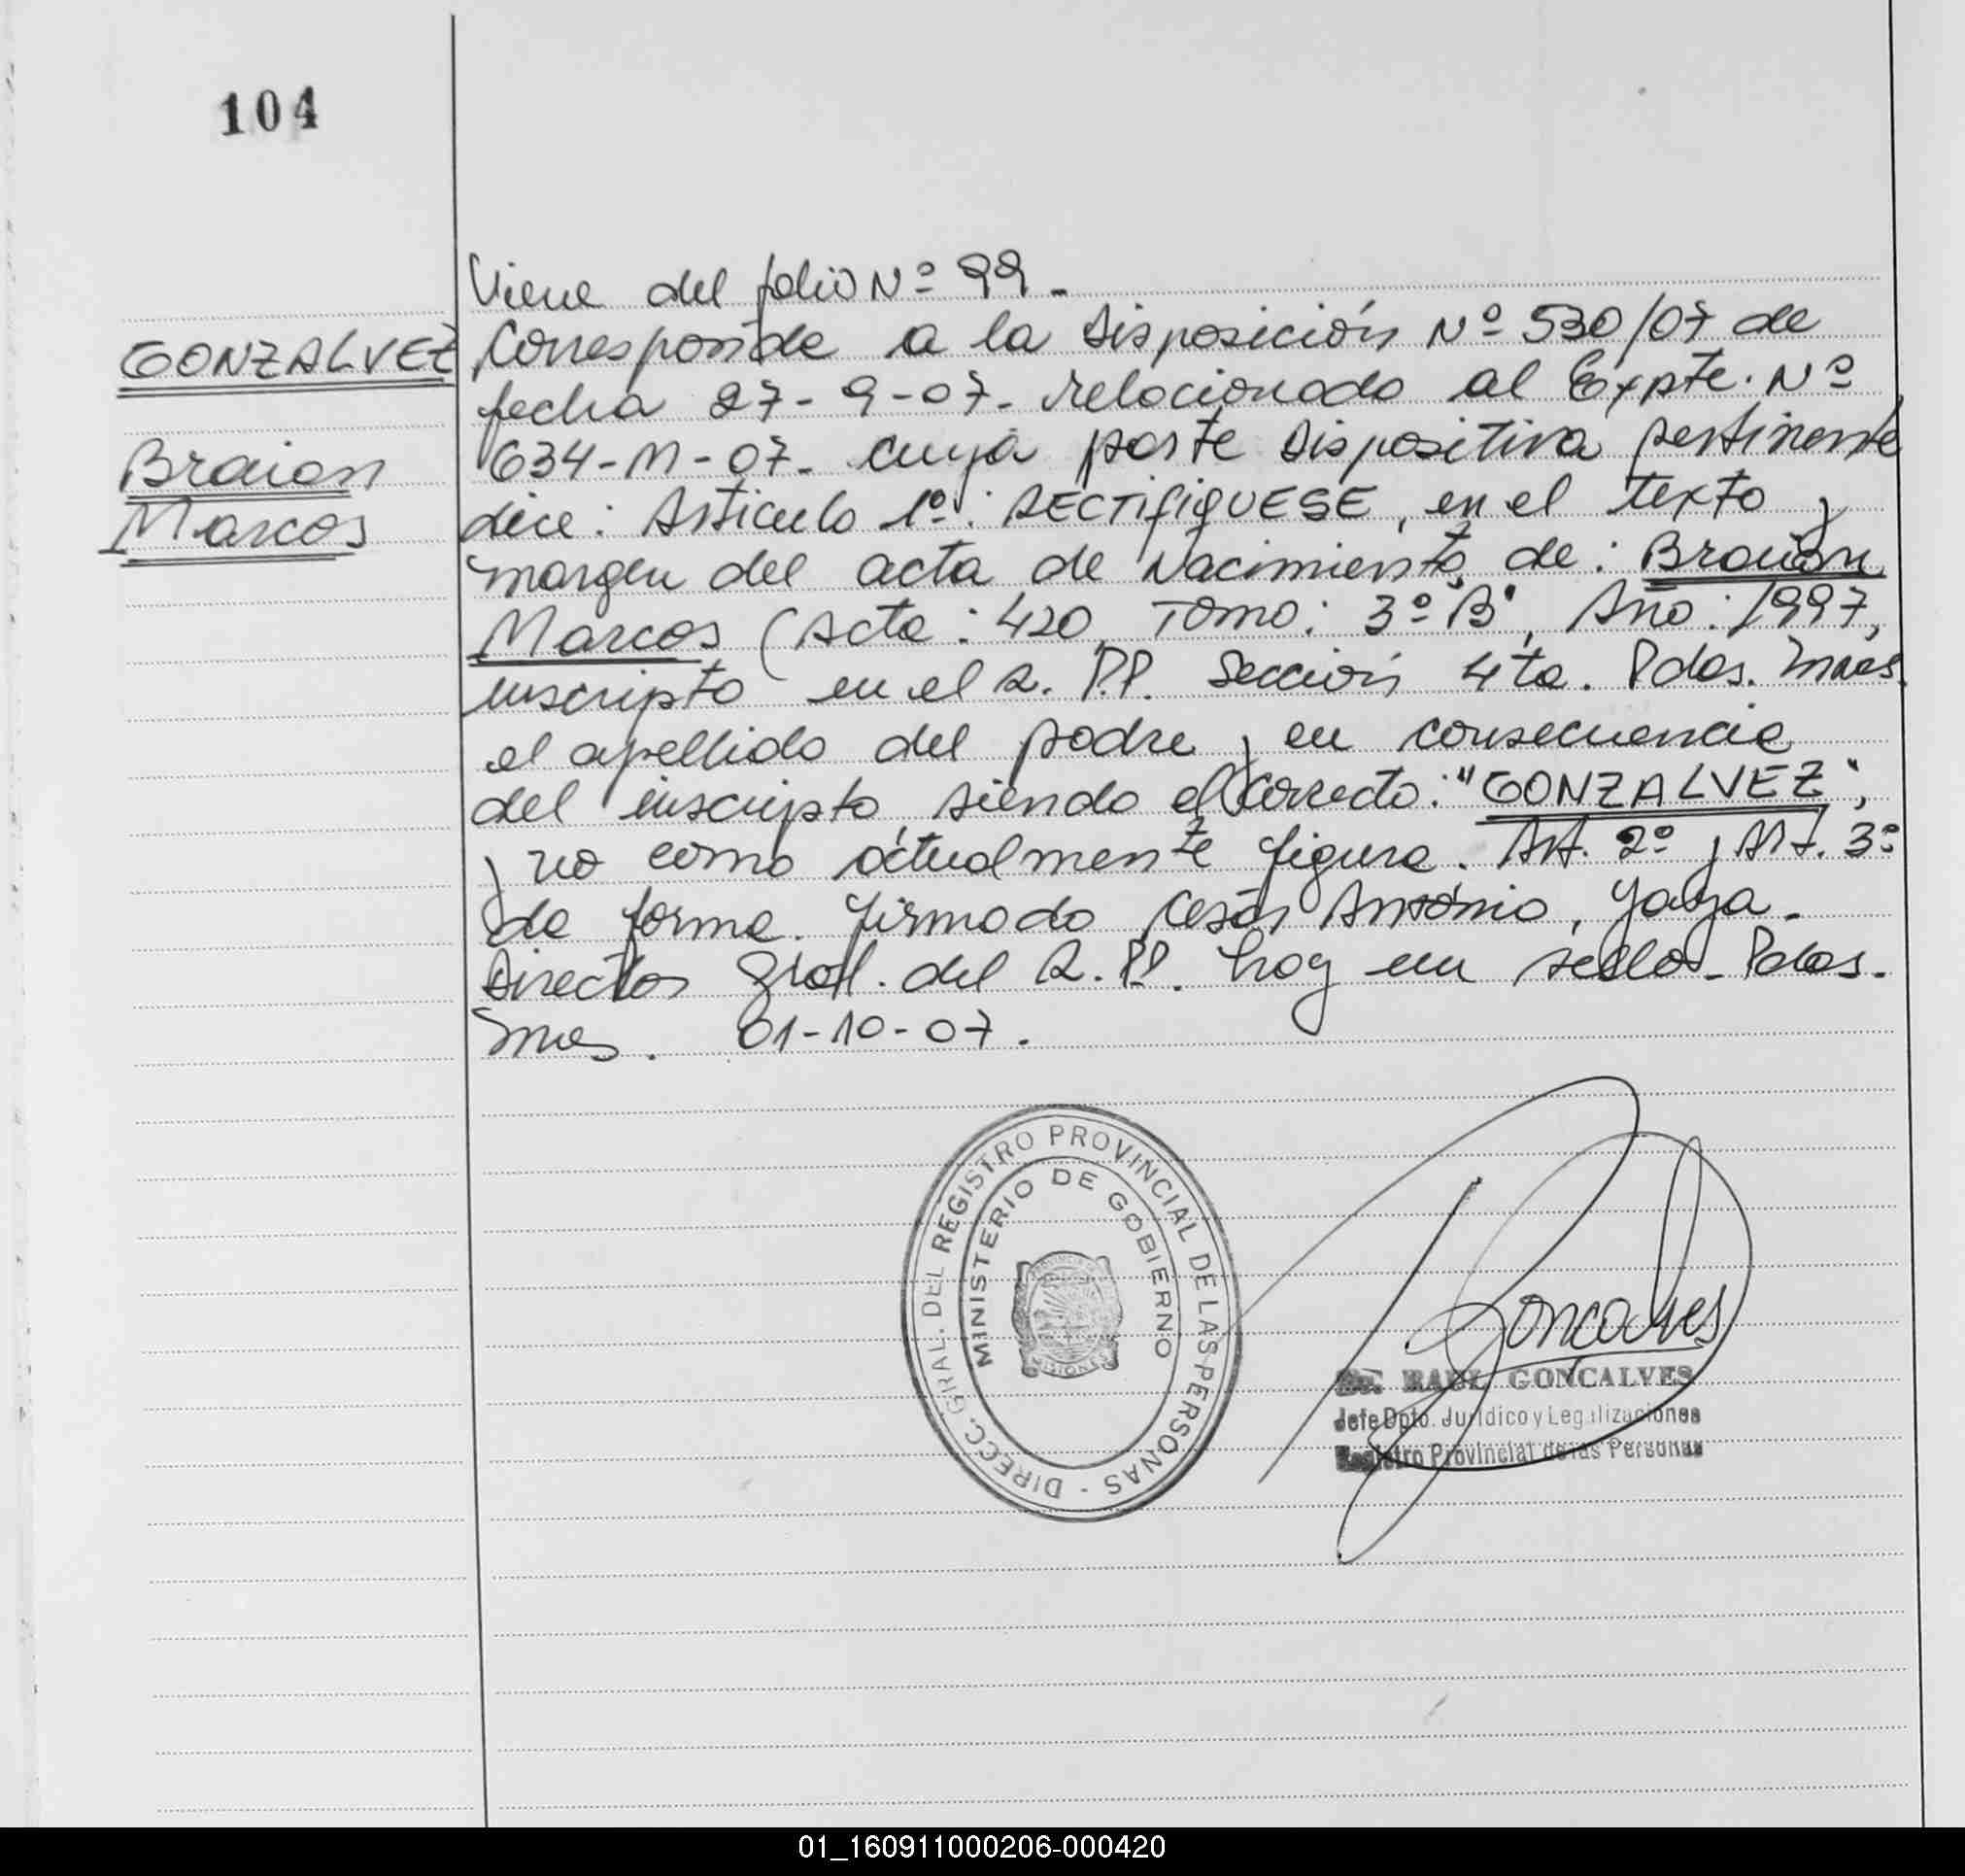 104
Viene del folio Nº 99.-
GONZALVEZ
Braian
Marcos
Corresponde a la Disposición Nº 530/07 de
fecha 27-9-07- relacionado al Expte. Nº
634-M-07- cuya parte dispositiva pertinente
dice: Articulo 1º: RECTIFIQUESE, en el texto y
margen del acta de Nacimiento de: Braian
Marcos (Acta: 420, Tomo: 3º"B", Año: 1997,
inscripto en el R. P.P. Sección 4ta. Pdas. Mnes.
el apellido del padre y en consecuencia
del inscripto, siendo el correcto: "GONZALVEZ",
y no como actualmente figura. Art. 2º y Art. 3º
de forma. firmado César Antonio, Yaya.
Director Gral. del R.P.P. hay un sello- Pdas.
Mnes. 01-10-07.
DIRECC. GRAL. DEL REGISTRO PROVINCIAL DE LAS PERSONAS -
MINISTERIO DE GOBIERNO
PROVINCIA DE
MISIONES
Goncalves
Dr. RAUL GONCALVES
Jefe Dpto. Jurídico y Legalizaciones
Registro Provincial de las Personas
01_160911000206-000420